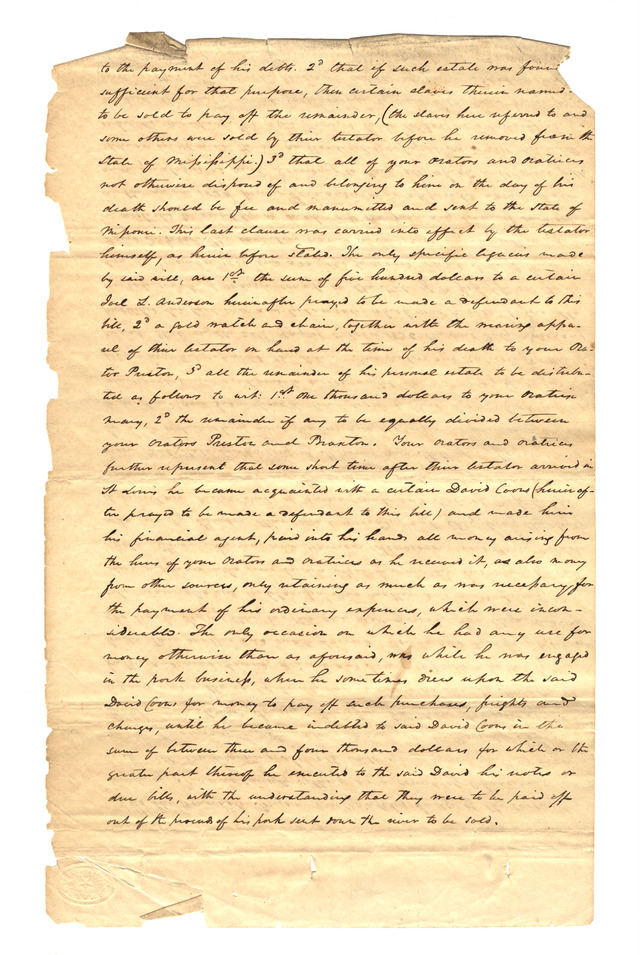 to the payment of his debts. 2d that if such estate was foun
sufficient for that purpose, then certain slaves therein named
to be sold to pay off the remainder, (the slaves here referred to and
some others were sold by their testator before he removed from the
State of Missippi.) 3d that all of your orators and oratrices
not otherwise disposed of and belonging to him on the day of his
death should be free and manumitted and sent to the State of
Missouri. This last clause was carried into effect by the testator
himself, as herein before stated. The only specific legacies made
by said will, are 1st the sum of five hundred dollars to a certain
Joel L. Anderson hereinafter prayed to be made a defendant to this
bill, 2d a gold watch and chain, together with the wearing appa-
rel of their testator on hand at the time of his death to your Ora-
tor Preston, 3d all the remainder of his personal estate to be distribu-
ted as follows to wit: 1st one thousand dollars to your Oratrix
Mary, 2d the remainder if any to be equally divided between
your Orators Preston and Braxton. Your orators and oratrices
further represent that some short time after their testator arrived in
St Louis he became acquainted with a certain David Coons (herein af-
ter prayed to be made a defendant to this bill) and made him
his financial agent, paid into his hands all money arising from
the hires of your Orators and oratrices as he received it, as also money
from other sources, only retaining as much as was necessary for
the payment of his ordinary expences, which were incon-
siderable. The only occasion on which he had any use for
money otherwise than as aforesaid, was while he was engaged
in the pork business, when he sometimes drew upon the said
David Coons for money to pay off such purchases, freights and
charges, until he became indebted to said David Coons in the
sum of between three and four thousand dollars for which or the
greater part thereof he executed to the said David his notes or
due bills, with the understanding that they were to be paid off
out of the proceeds of his pork sent down the river to be sold.